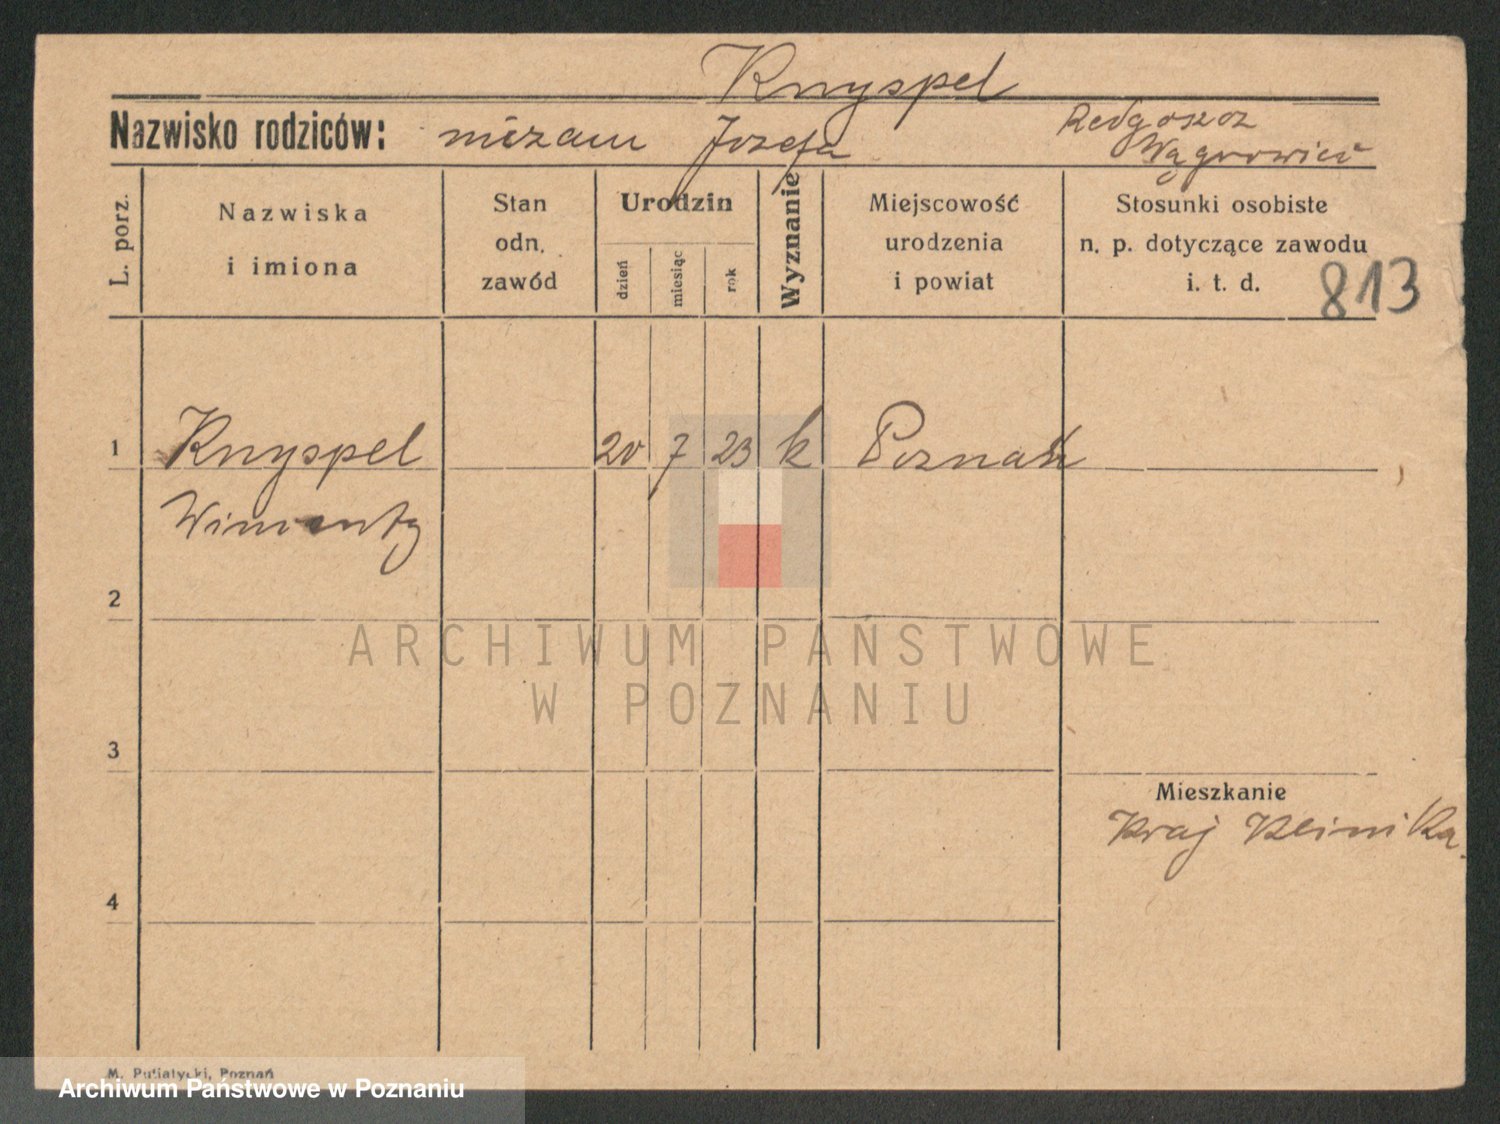 Knyspel
Nazwisko rodziców: niezam Józefa Redgoszcz
Wągrowiec
L. porz.
Nazwiska
i imiona
Stan
odn.
zawód
Urodzin
dzień
miesiąc
rok
Wyznanie
Miejscowość
urodzenia
i powiat
Stosunki osobiste
n. p. dotyczące zawodu
i. t. d.
813
1 Knyspel 20 7 23 k Poznań
2
3
4
Mieszkanie
Kraj Klinika
ARCHIWUM PAŃSTWOWE
W POZNANIU
M. Putiatycki, Poznań
Archiwum Państwowe w Poznaniu